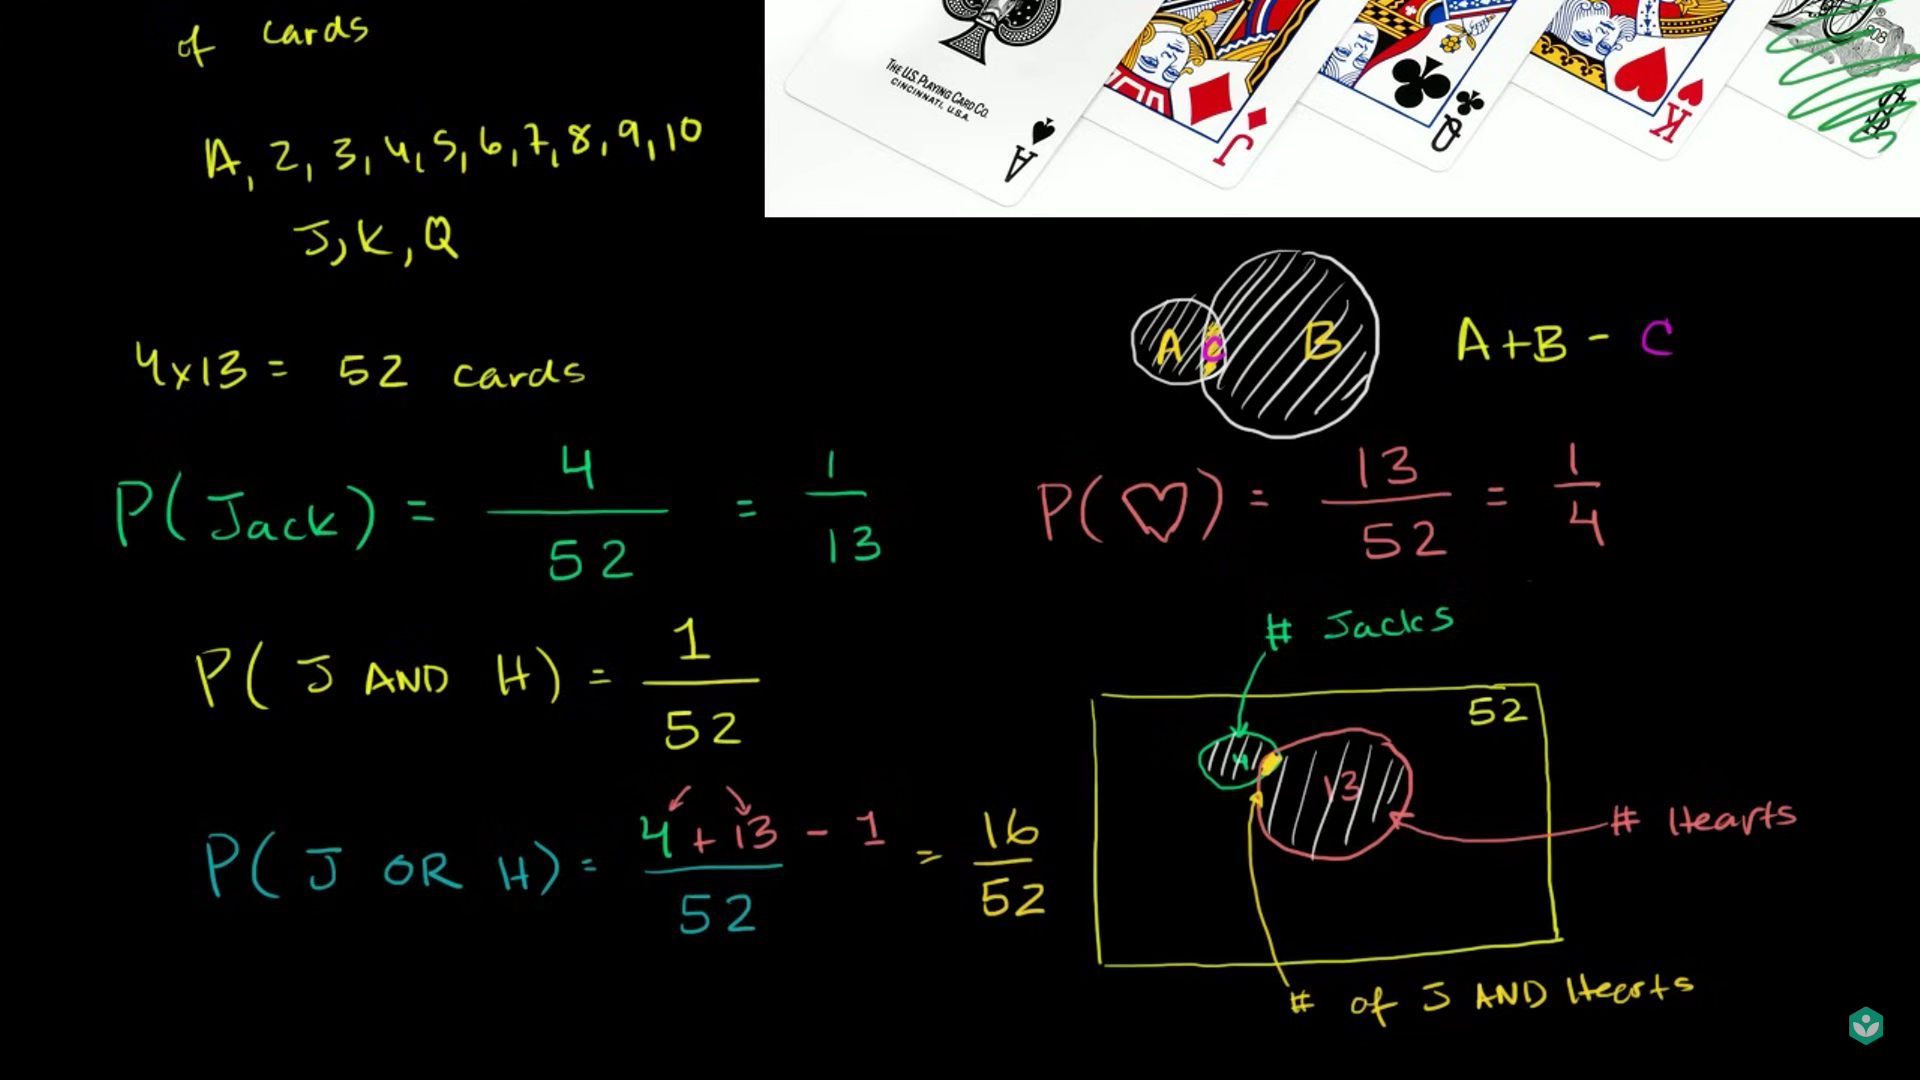 of cards
A, 2, 3, 4, 5, 6, 7, 8, 9, 10
J, K, Q
4x13 = 52 cards
THE U.S. PLAYING CARD CO.
CINCINNATI, U.S.A.
A
J
Q
K
A B C
A + B - C
P(Jack) = 4/52 = 1/13
P(♡) = 13/52 = 1/4
P(J AND H) = 1/52
P(J OR H) = 4 + 13 - 1/52 = 16/52
# Jacks
52
4
13
# Hearts
# of J AND Hearts